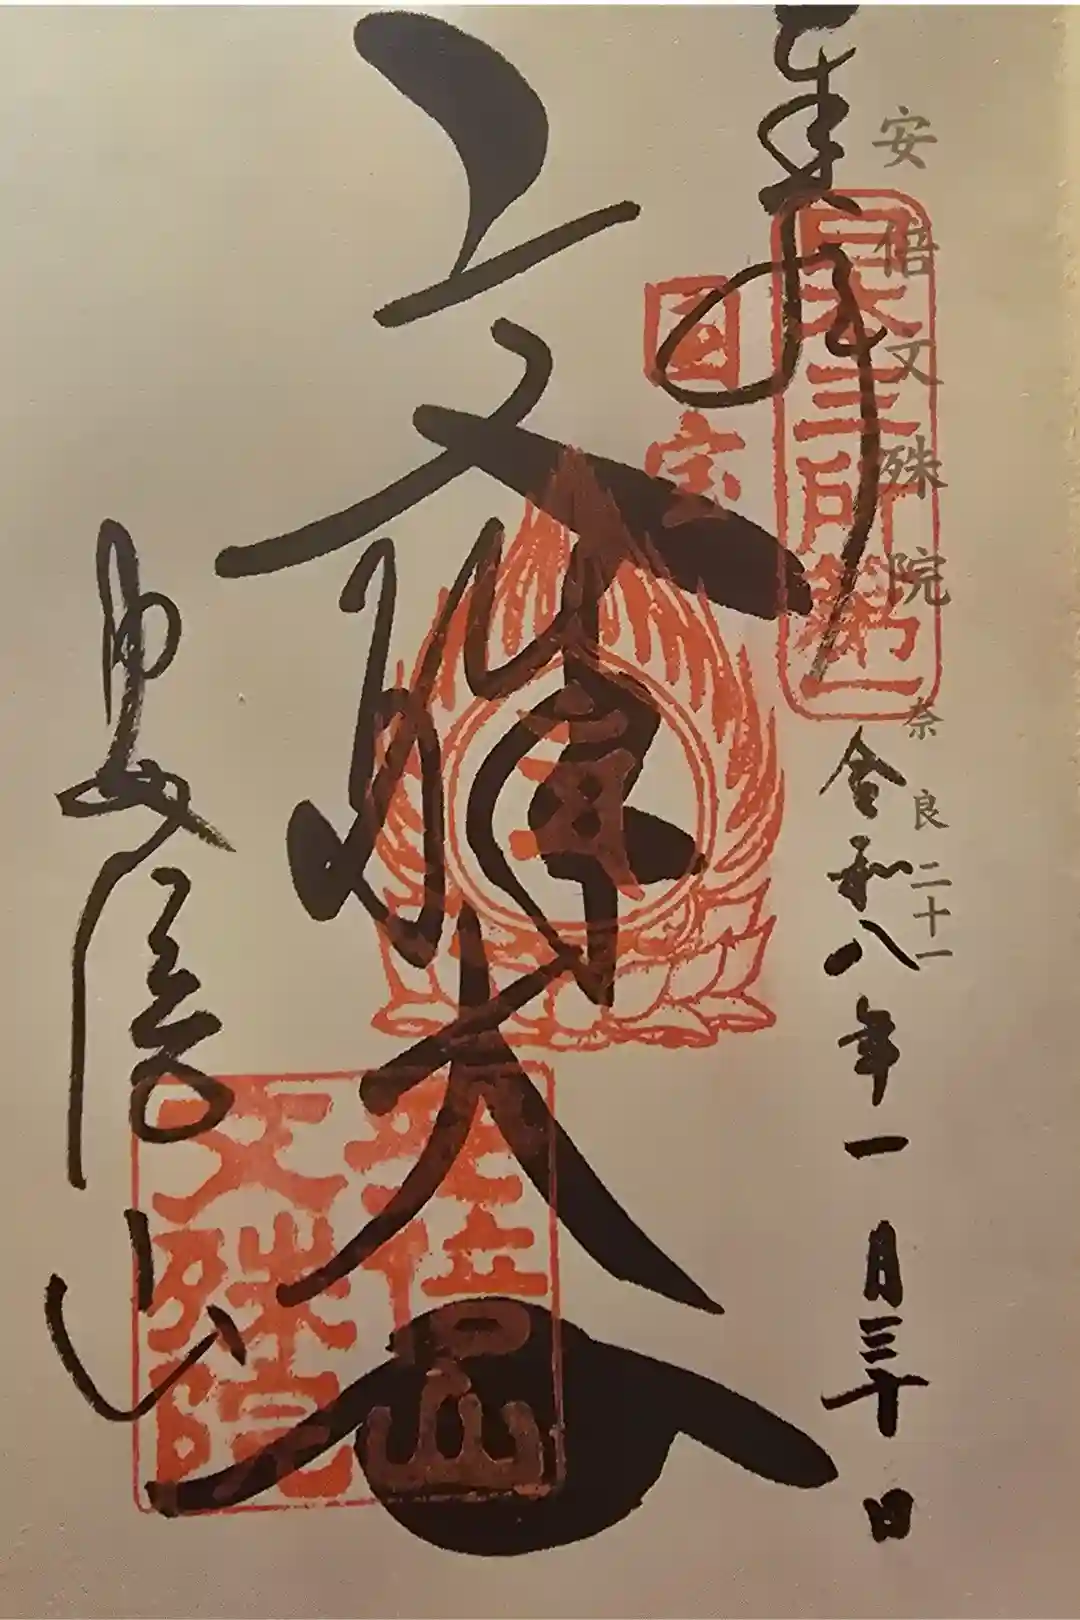 安倍文殊院 奈良二十一
奉拝
日本三所第一
令和八年一月三十日
国宝
文殊大士
安倍山
文殊院
安倍山